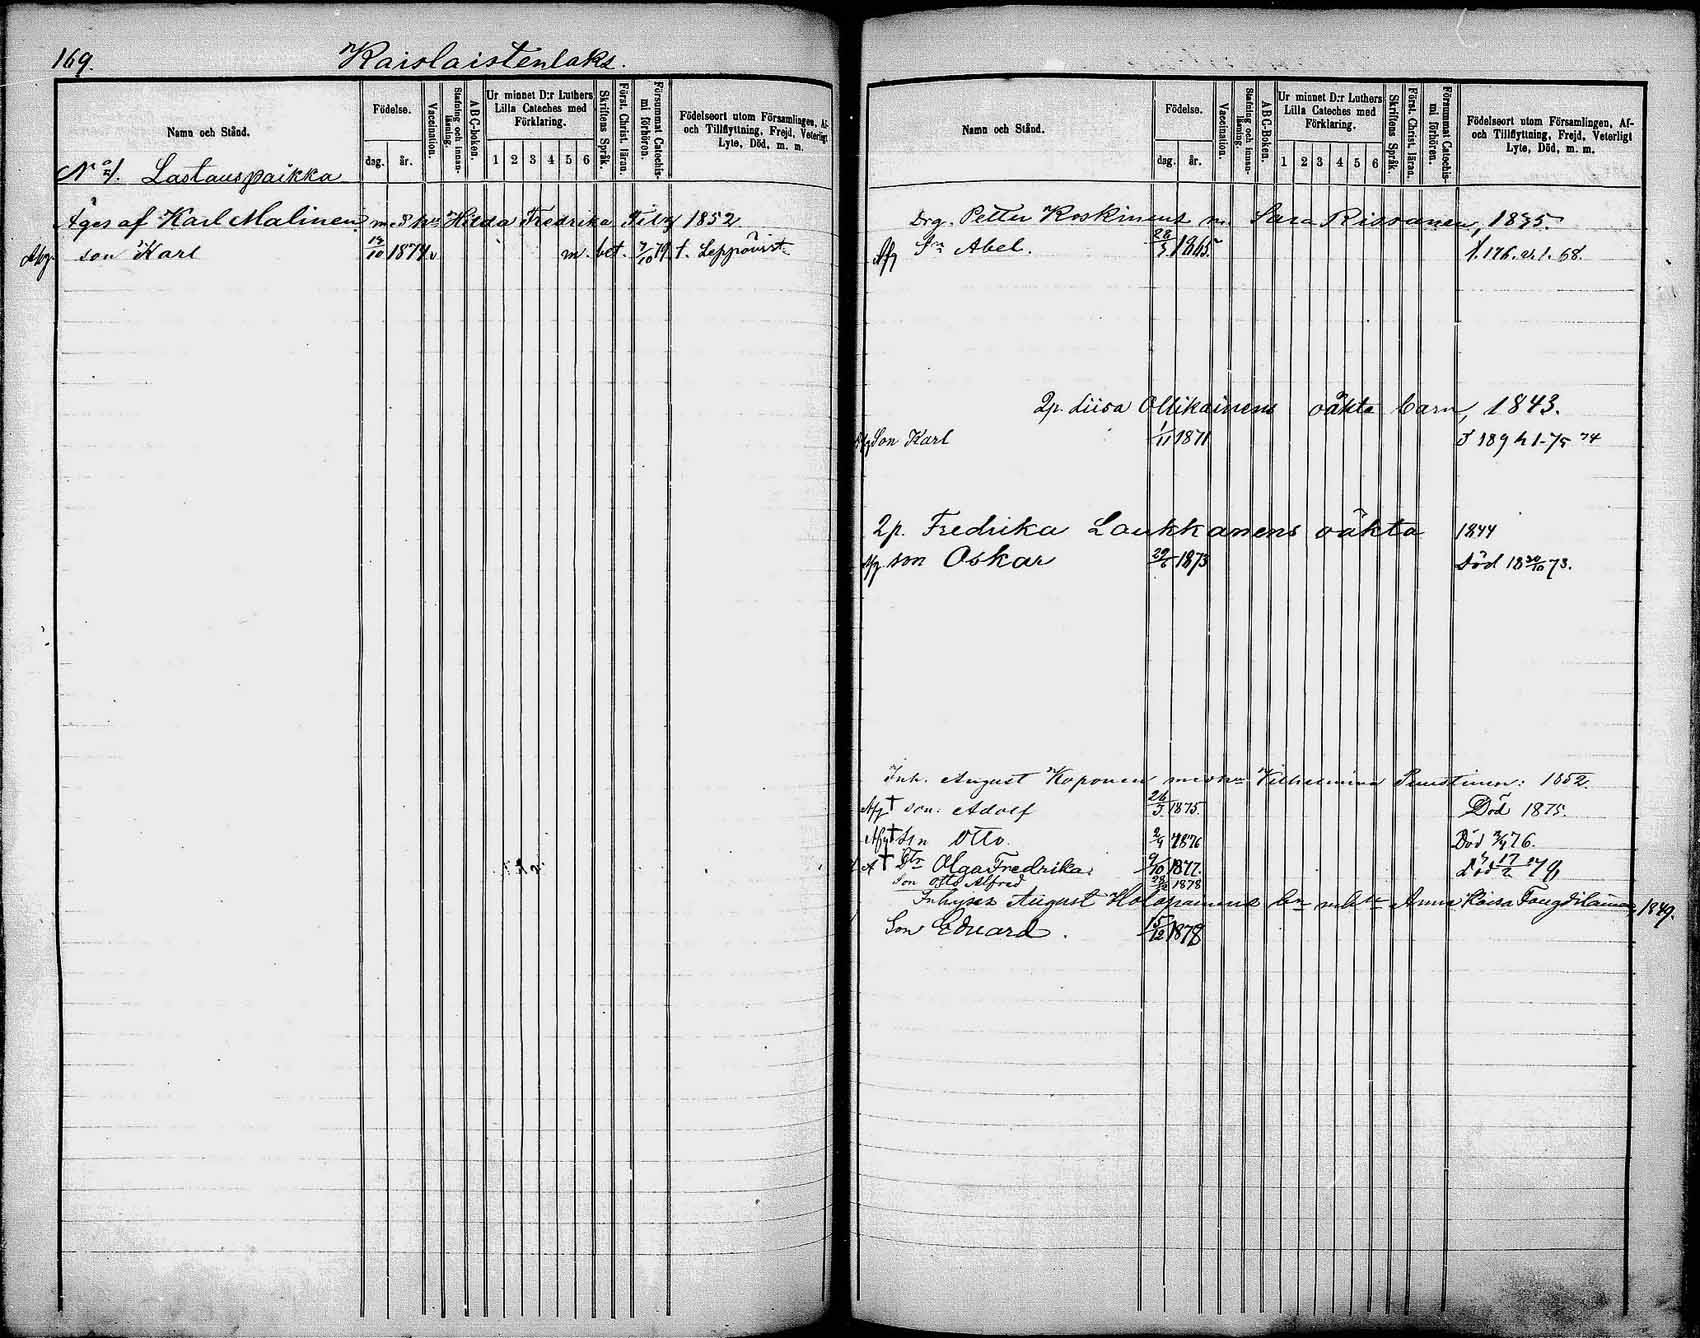 169. Kaislaistenlaks.
Namn och Stånd.
Födelse.
dag. år.
Vaccination.
Stafning och innan-läsning.
ABC-Boken.
Ur minnet D:r Luthers Lilla Cateches med Förklaring.
1 2 3 4 5 6
Skriftens Språk.
Först. Christ. läran.
Försummat Catechis-mi förhören.
Födelseort utom Församlingen, Af-
och Tillflyttning, Frejd, Veterligt
Lyte, Död, m. m.
Lastauspaikka
Äges af Karl Malinen m. Hilda Fredrika 1852
son Karl 1874 m. bet.
Namn och Stånd.
Födelse.
dag. år.
Vaccination.
Stafning och innan-läsning.
ABC-Boken.
Ur minnet D:r Luthers Lilla Cateches med Förklaring.
1 2 3 4 5 6
Skriftens Språk.
Först. Christ. läran.
Försummat Catechis-mi förhören.
Födelseort utom Församlingen, Af-
och Tillflyttning, Frejd, Veterligt
Lyte, Död, m. m.
Drg. Petter Koskinens m. Sara Rissanen, 1835.
Abel. 1865.
2p. Liisa Ollikainens oäkta barn, 1843.
Son Karl 1/11 1871
2p. Fredrika Laukkanens oäkta 1844
son Oskar 29/6 1873 Död 18 30/10 73.
Inh. August Koponen Vilhelmina Puustinen: 1852.
† son: Adolf 1875. Död 1875.
† Sn Otto. 1876 Död 76.
† Dtr Olga Fredrika. 9/10 1877.
Son Otto Alfred 1878
Inhyses August Holopainens Anna Kaisa 1849.
Son Eduard. 15/12 1878